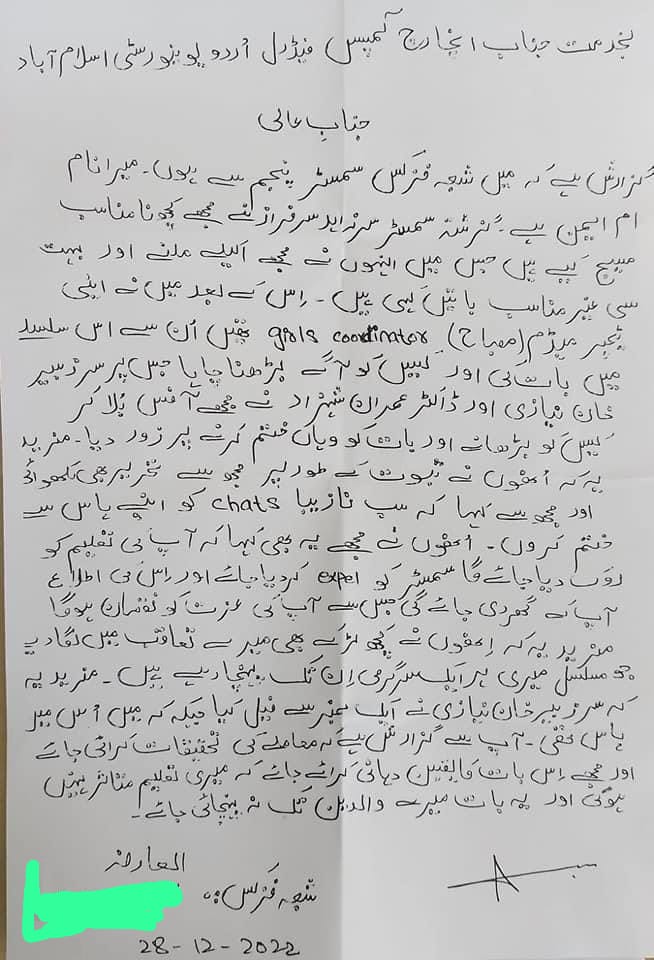 بخدمت جناب انچارج کیمپس فیڈرل اُردو یونیورسٹی اسلام آباد
جنابِ عالی
گزارش ہے کہ میں شعبہ فزکس سمسٹر پنجم سے ہوں۔ میرا نام
ام ایمن ہے۔ گزشتہ سمسٹر سر زاہد سرفراز نے مجھے کچھ نامناسب
میسج کیے ہیں جس میں انہوں نے مجھے اکیلے ملنے اور بہت
سی غیر مناسب باتیں کہی ہیں۔ اِس کے بعد میں نے اپنی
ٹیچر میڈم (مصباح) girls coordinator تھیں اُن سے اس سلسلے
میں بات کی اور کیس کو آگے بڑھنا چاہا جس پر سر زبیر
خان نیازی اور ڈاکٹر عمران شہزاد نے مجھے آفس بُلا کر
کیس کو بڑھانے اور بات کو وہاں ختم کرنے پر زور دیا۔ مزید
یہ کہ اُنھوں نے ثبوت کے طور پر مجھ سے تحریر بھی لکھوائی
اور مجھ سے کہا کہ سب نازیبا chats کو اپنے پاس سے
ختم کروں۔ اُنھوں نے مجھے یہ بھی کہا کہ آپ کی تعلیم کو
روک دیا جائے گا سمسٹر کو expel کر دیا جائے اور اِس کی اطلاع
آپ کے گھر دی جائے گی جس سے آپ کی عزت کو نقصان ہوگا
مزید یہ کہ اِنھوں نے کچھ لڑکے بھی میرے تعاقب میں لگا دیے
جو مسلسل میری ہر ایک سرگرمی اِن تک پہنچا رہے ہیں۔ مزید یہ
کہ سر زبیر خان نیازی نے ایک نمبر سے فیل کیا جبکہ میں اُس میں
پاس تھی۔ آپ سے گزارش ہے کہ معاملے کی تحقیقات کرائی جائے
اور مجھے اِس بات کا یقین دہانی کرائے جائے کہ میری تعلیم متاثر نہیں
ہوگی اور یہ بات میرے والدین تک نہ پہنچائی جائے۔
العارض
شعبہ فزکس
28-12-2022